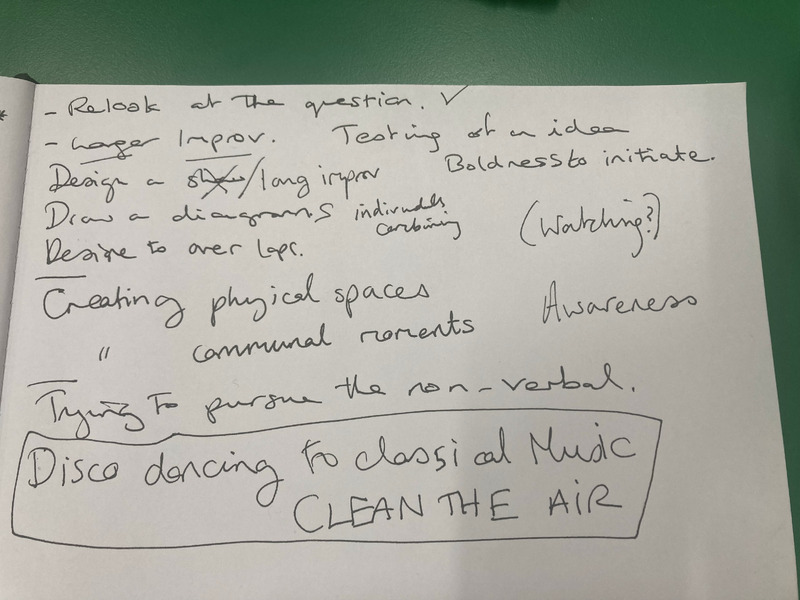 - Relook at the question. ✓
- Longer Improv. Testing of an idea
Boldness to initiate.
Design a /long improv
Draw a diagrams individuals
combining
(Watching?)
Desire to over laps.
Creating physical spaces
Awareness
" communal moments
Trying to pursue the non-verbal.
Disco dancing to classical Music
CLEAN THE AIR